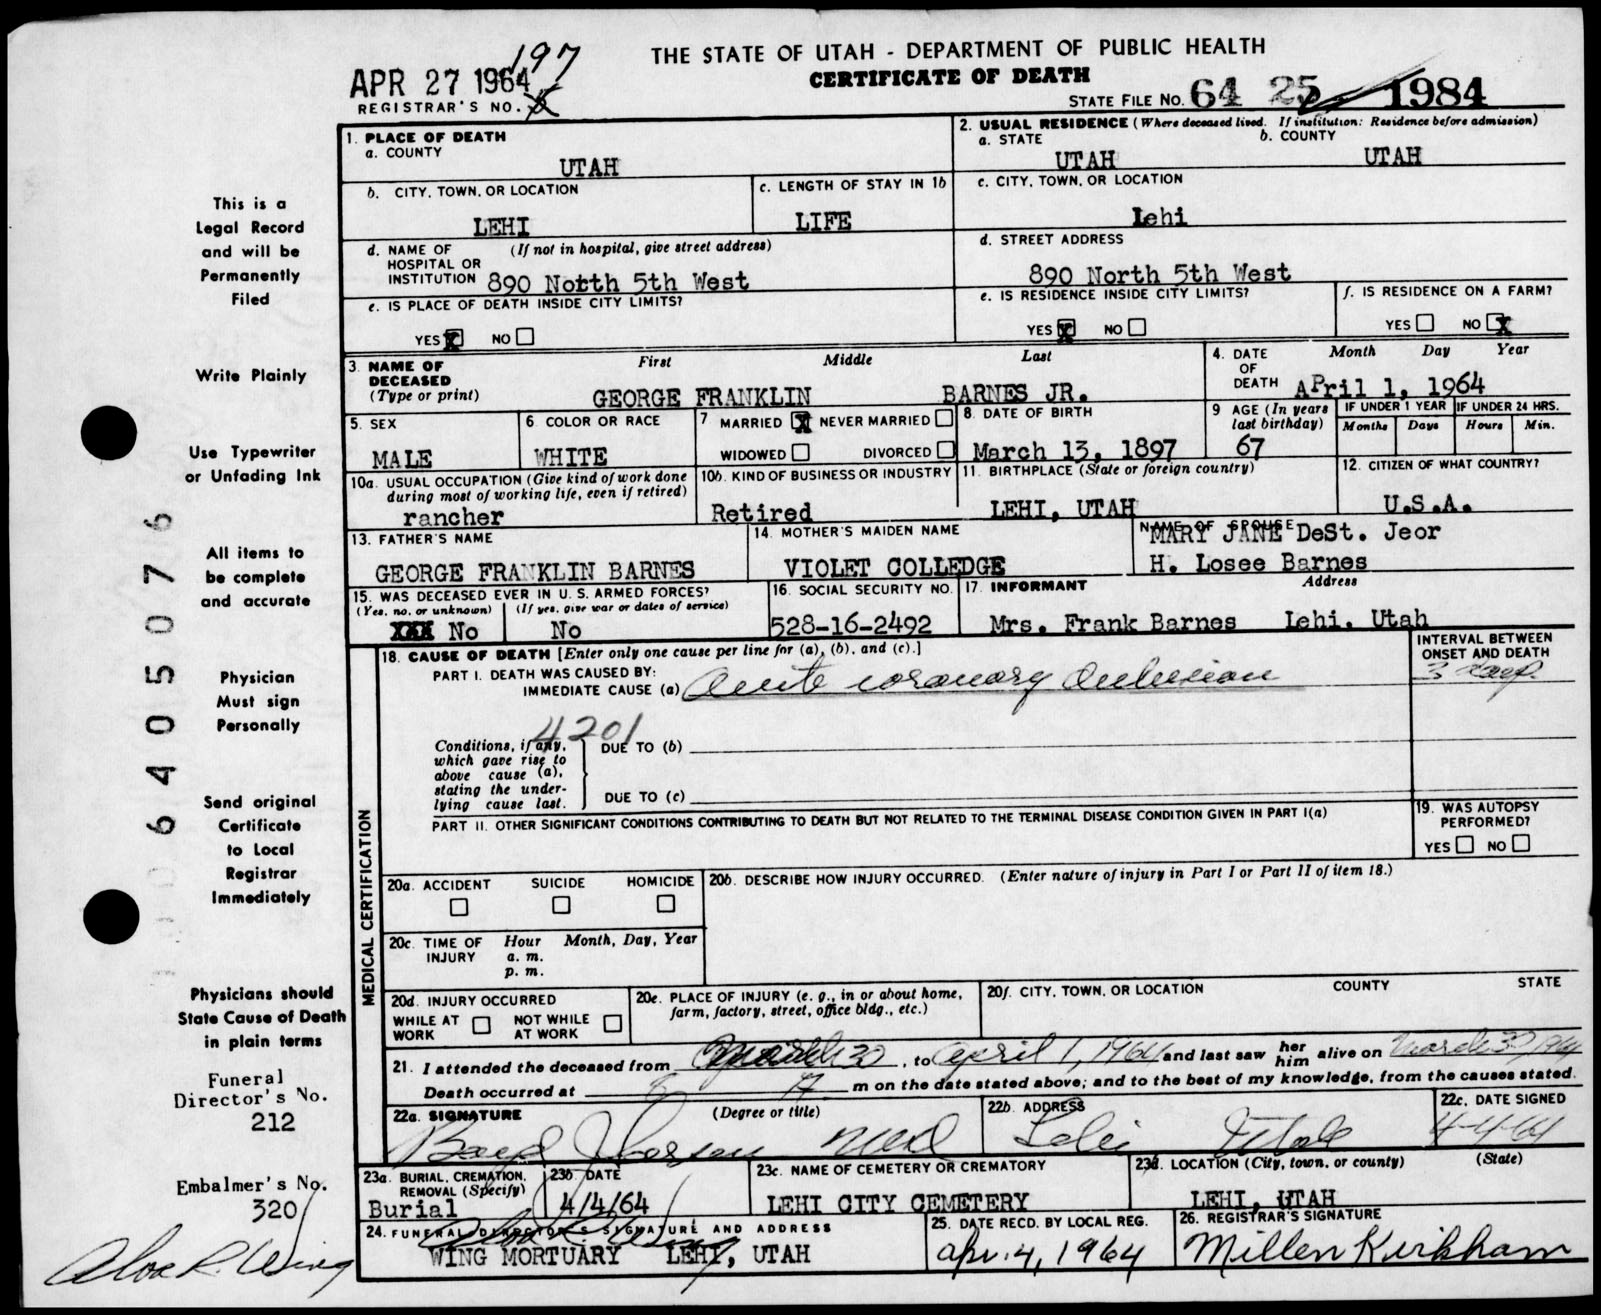 THE STATE OF UTAH - DEPARTMENT OF PUBLIC HEALTH
CERTIFICATE OF DEATH
197
APR 27 1964
REGISTRAR'S NO.
STATE FILE NO. 64 25 1984
This is a
Legal Record
and will be
Permanently
Filed
Write Plainly
Use Typewriter
or Unfading Ink
All items to
be complete
and accurate
Physician
Must sign
Personally
Send original
Certificate
to Local
Registrar
Immediately
Physicians should
State Cause of Death
in plain terms
Funeral
Director's No.
212
Embalmer's No.
320
640505076
1. PLACE OF DEATH
a. COUNTY
UTAH
2. USUAL RESIDENCE (Where deceased lived. If institution: Residence before admission)
a. STATE b. COUNTY
UTAH UTAH
b. CITY, TOWN, OR LOCATION
LEHI
c. LENGTH OF STAY IN 1b
LIFE
c. CITY, TOWN, OR LOCATION
Lehi
d. NAME OF (If not in hospital, give street address)
HOSPITAL OR
INSTITUTION 890 North 5th West
d. STREET ADDRESS
890 North 5th West
e. IS PLACE OF DEATH INSIDE CITY LIMITS?
YES X NO
e. IS RESIDENCE INSIDE CITY LIMITS?
YES X NO
f. IS RESIDENCE ON A FARM?
YES NO X
3. NAME OF First Middle Last
DECEASED
(Type or print) GEORGE FRANKLIN BARNES JR.
4. DATE Month Day Year
OF
DEATH APril 1, 1964
5. SEX
MALE
6. COLOR OR RACE
WHITE
7 MARRIED X NEVER MARRIED
WIDOWED DIVORCED
8. DATE OF BIRTH
March 13, 1897
9 AGE (In years
last birthday)
67
IF UNDER 1 YEAR IF UNDER 24 HRS.
Months Days Hours Min.
10a. USUAL OCCUPATION (Give kind of work done
during most of working life, even if retired)
rancher
10b. KIND OF BUSINESS OR INDUSTRY
Retired
11. BIRTHPLACE (State or foreign country)
LEHI, UTAH
12. CITIZEN OF WHAT COUNTRY?
U.S.A.
13. FATHER'S NAME
GEORGE FRANKLIN BARNES
14. MOTHER'S MAIDEN NAME
VIOLET COLLEDGE
NAME OF SPOUSE
MARY JANE DeSt. Jeor
H. Losee Barnes
15. WAS DECEASED EVER IN U. S. ARMED FORCES?
(Yes, no, or unknown) (If yes, give war or dates of service)
XXX No No
16. SOCIAL SECURITY NO.
528-16-2492
17. INFORMANT Address
Mrs. Frank Barnes Lehi, Utah
MEDICAL CERTIFICATION
18. CAUSE OF DEATH [Enter only one cause per line for (a), (b), and (c).]
INTERVAL BETWEEN
ONSET AND DEATH
PART I. DEATH WAS CAUSED BY:
IMMEDIATE CAUSE (a) Acute coronary Occlusion 3 days
4201
Conditions, if any,
which gave rise to
above cause (a),
stating the under-
lying cause last.
DUE TO (b)
DUE TO (c)
PART II. OTHER SIGNIFICANT CONDITIONS CONTRIBUTING TO DEATH BUT NOT RELATED TO THE TERMINAL DISEASE CONDITION GIVEN IN PART I(a)
19. WAS AUTOPSY
PERFORMED?
YES NO
20a. ACCIDENT SUICIDE HOMICIDE
20b. DESCRIBE HOW INJURY OCCURRED. (Enter nature of injury in Part I or Part II of item 18.)
20c. TIME OF Hour Month, Day, Year
INJURY a. m.
p. m.
20d. INJURY OCCURRED
WHILE AT NOT WHILE
WORK AT WORK
20e. PLACE OF INJURY (e. g., in or about home,
farm, factory, street, office bldg., etc.)
20f. CITY, TOWN, OR LOCATION COUNTY STATE
21. I attended the deceased from March 30, to April 1, 1964 and last saw her him alive on March 30, 1964
Death occurred at m on the date stated above; and to the best of my knowledge, from the causes stated.
22a. SIGNATURE (Degree or title)
Boyd J Larson
22b. ADDRESS
Lehi Utah
22c. DATE SIGNED
4-4-64
23a. BURIAL, CREMATION,
REMOVAL (Specify)
Burial
23b. DATE
4/4/64
23c. NAME OF CEMETERY OR CREMATORY
LEHI CITY CEMETERY
23d. LOCATION (City, town, or county) (State)
LEHI, UTAH
24. FUNERAL DIRECTOR'S SIGNATURE AND ADDRESS
WING MORTUARY LEHI, UTAH
25. DATE RECD. BY LOCAL REG.
Apr. 4, 1964
26. REGISTRAR'S SIGNATURE
Millen Kirkham